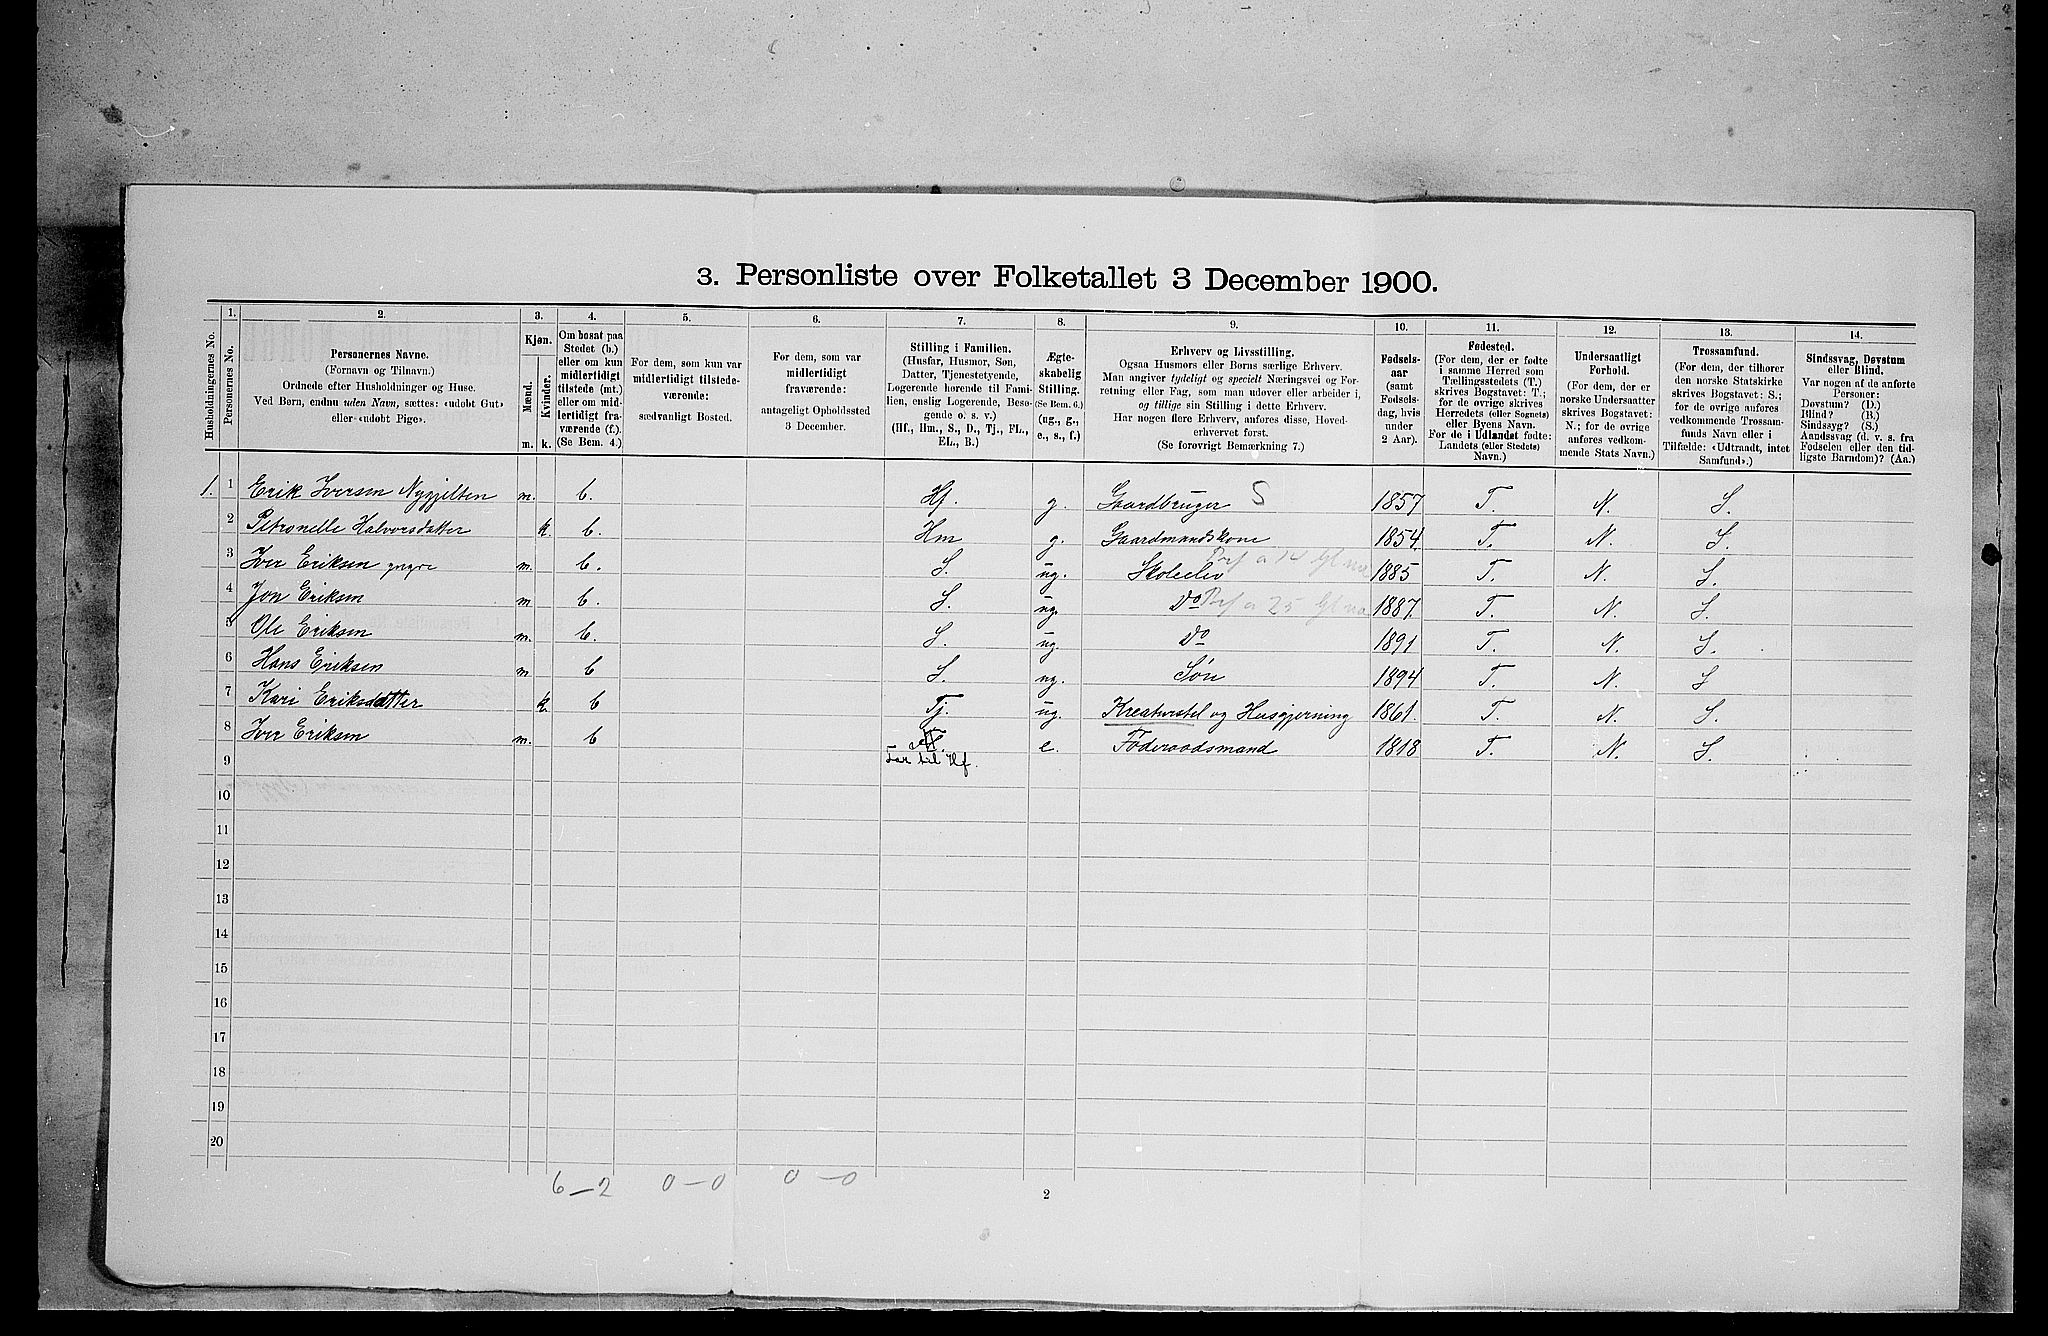 3. Personliste over Folketallet 3 December 1900.
Husholdningernes No.
1.
Personernes No.
2.
Personernes Navne.
(Fornavn og Tilnavn.)
Ordnede efter Husholdninger og Huse.
Ved Børn, endnu uden Navn, sættes: «udøbt Gut»
eller «udøbt Pige».
3.
Kjøn.
Mænd.
Kvinder.
m. k.
4.
Om bosat paa
Stedet (b.)
eller om kun
midlertidigt
tilstede (mt.)
eller om mid-
lertidigt fra-
værende (f.).
(Se Bem. 4.)
5.
For dem, som kun var
midlertidigt tilstede-
værende:
sædvanligt Bosted.
6.
For dem, som var
midlertidigt
fraværende:
antageligt Opholdssted
3 December.
7.
Stilling i Familien.
(Husfar, Husmor, Søn,
Datter, Tjenestetyende,
Logerende hørende til Fami-
lien, enslig Logerende, Besø-
gende o. s. v.)
(Hf., Hm., S., D., Tj., FL.,
EL., B.)
8.
Ægte-
skabelig
Stilling.
(Se Bem. 6.)
(ug., g.,
e., s., f.)
9.
Erhverv og Livsstilling.
Ogsaa Husmors eller Børns særlige Erhverv.
Man angiver tydeligt og specielt Næringsvei og For-
retning eller Fag, som man udøver eller arbeider i,
og tillige sin Stilling i dette Erhverv.
Har nogen flere Erhverv, anføres disse, Hoved-
erhvervet først.
(Se forøvrigt Bemærkning 7.)
10.
Fødsels-
aar
(samt
Fødsels-
dag, hvis
under
2 Aar).
11.
Fødested.
(For dem, der er fødte
i samme Herred som
Tællingsstedets (T.)
skrives Bogstavet: T.;
for de øvrige skrives
Herredets (eller Sognets)
eller Byens Navn.
For de i Udlandet fødte:
Landets (eller Stedets)
Navn.)
12.
Undersaatligt
Forhold.
(For dem, der er
norske Undersaatter
skrives Bogstavet:
N.; for de øvrige
anføres vedkom-
mende Stats Navn.)
13.
Trossamfund.
(For dem, der tilhører
den norske Statskirke
skrives Bogstavet: S.;
for de øvrige anføres
vedkommende Trossam-
funds Navn eller i
Tilfælde: «Udtraadt, intet
Samfund».)
14.
Sindssvag, Døvstum
eller Blind.
Var nogen af de anførte
Personer:
Døvstum? (D.)
Blind? (B.)
Sindssyg? (S.)
Aandssvag (d. v. s. fra
Fødselen eller den tid-
ligste Barndom)? (Aa.)
1. 1 Erik Iversen Nygjelten m. b. Hf. g. Gaardbruger S 1857 T. N. S.
2 Petronelle Halvorsdatter k. b. Hm g. Gaardmandskone 1854. T. N. S.
3 Iver Eriksen yngre m. b. S. ug. Skoleelev 1885 T. N. S.
4 Jon Eriksen m b. S. ug. do 1887. T. N. S.
5 Ole Eriksen m. b. S. ug. do 1891 T. N. S.
6 Hans Eriksen m b S. ug. Søn 1894 T. N. S
7 Kari Eriksdatter k. b Tj. ug. Kreaturstel og Husgjerning 1861. T. N. S.
8 Iver Eriksen m. b e. Føderaadsmand 1818 T. N. S.
9 Far til Hf.
10
11
12
13
14
15
16
17
18
19
20
6–2 0–0 0–0
2